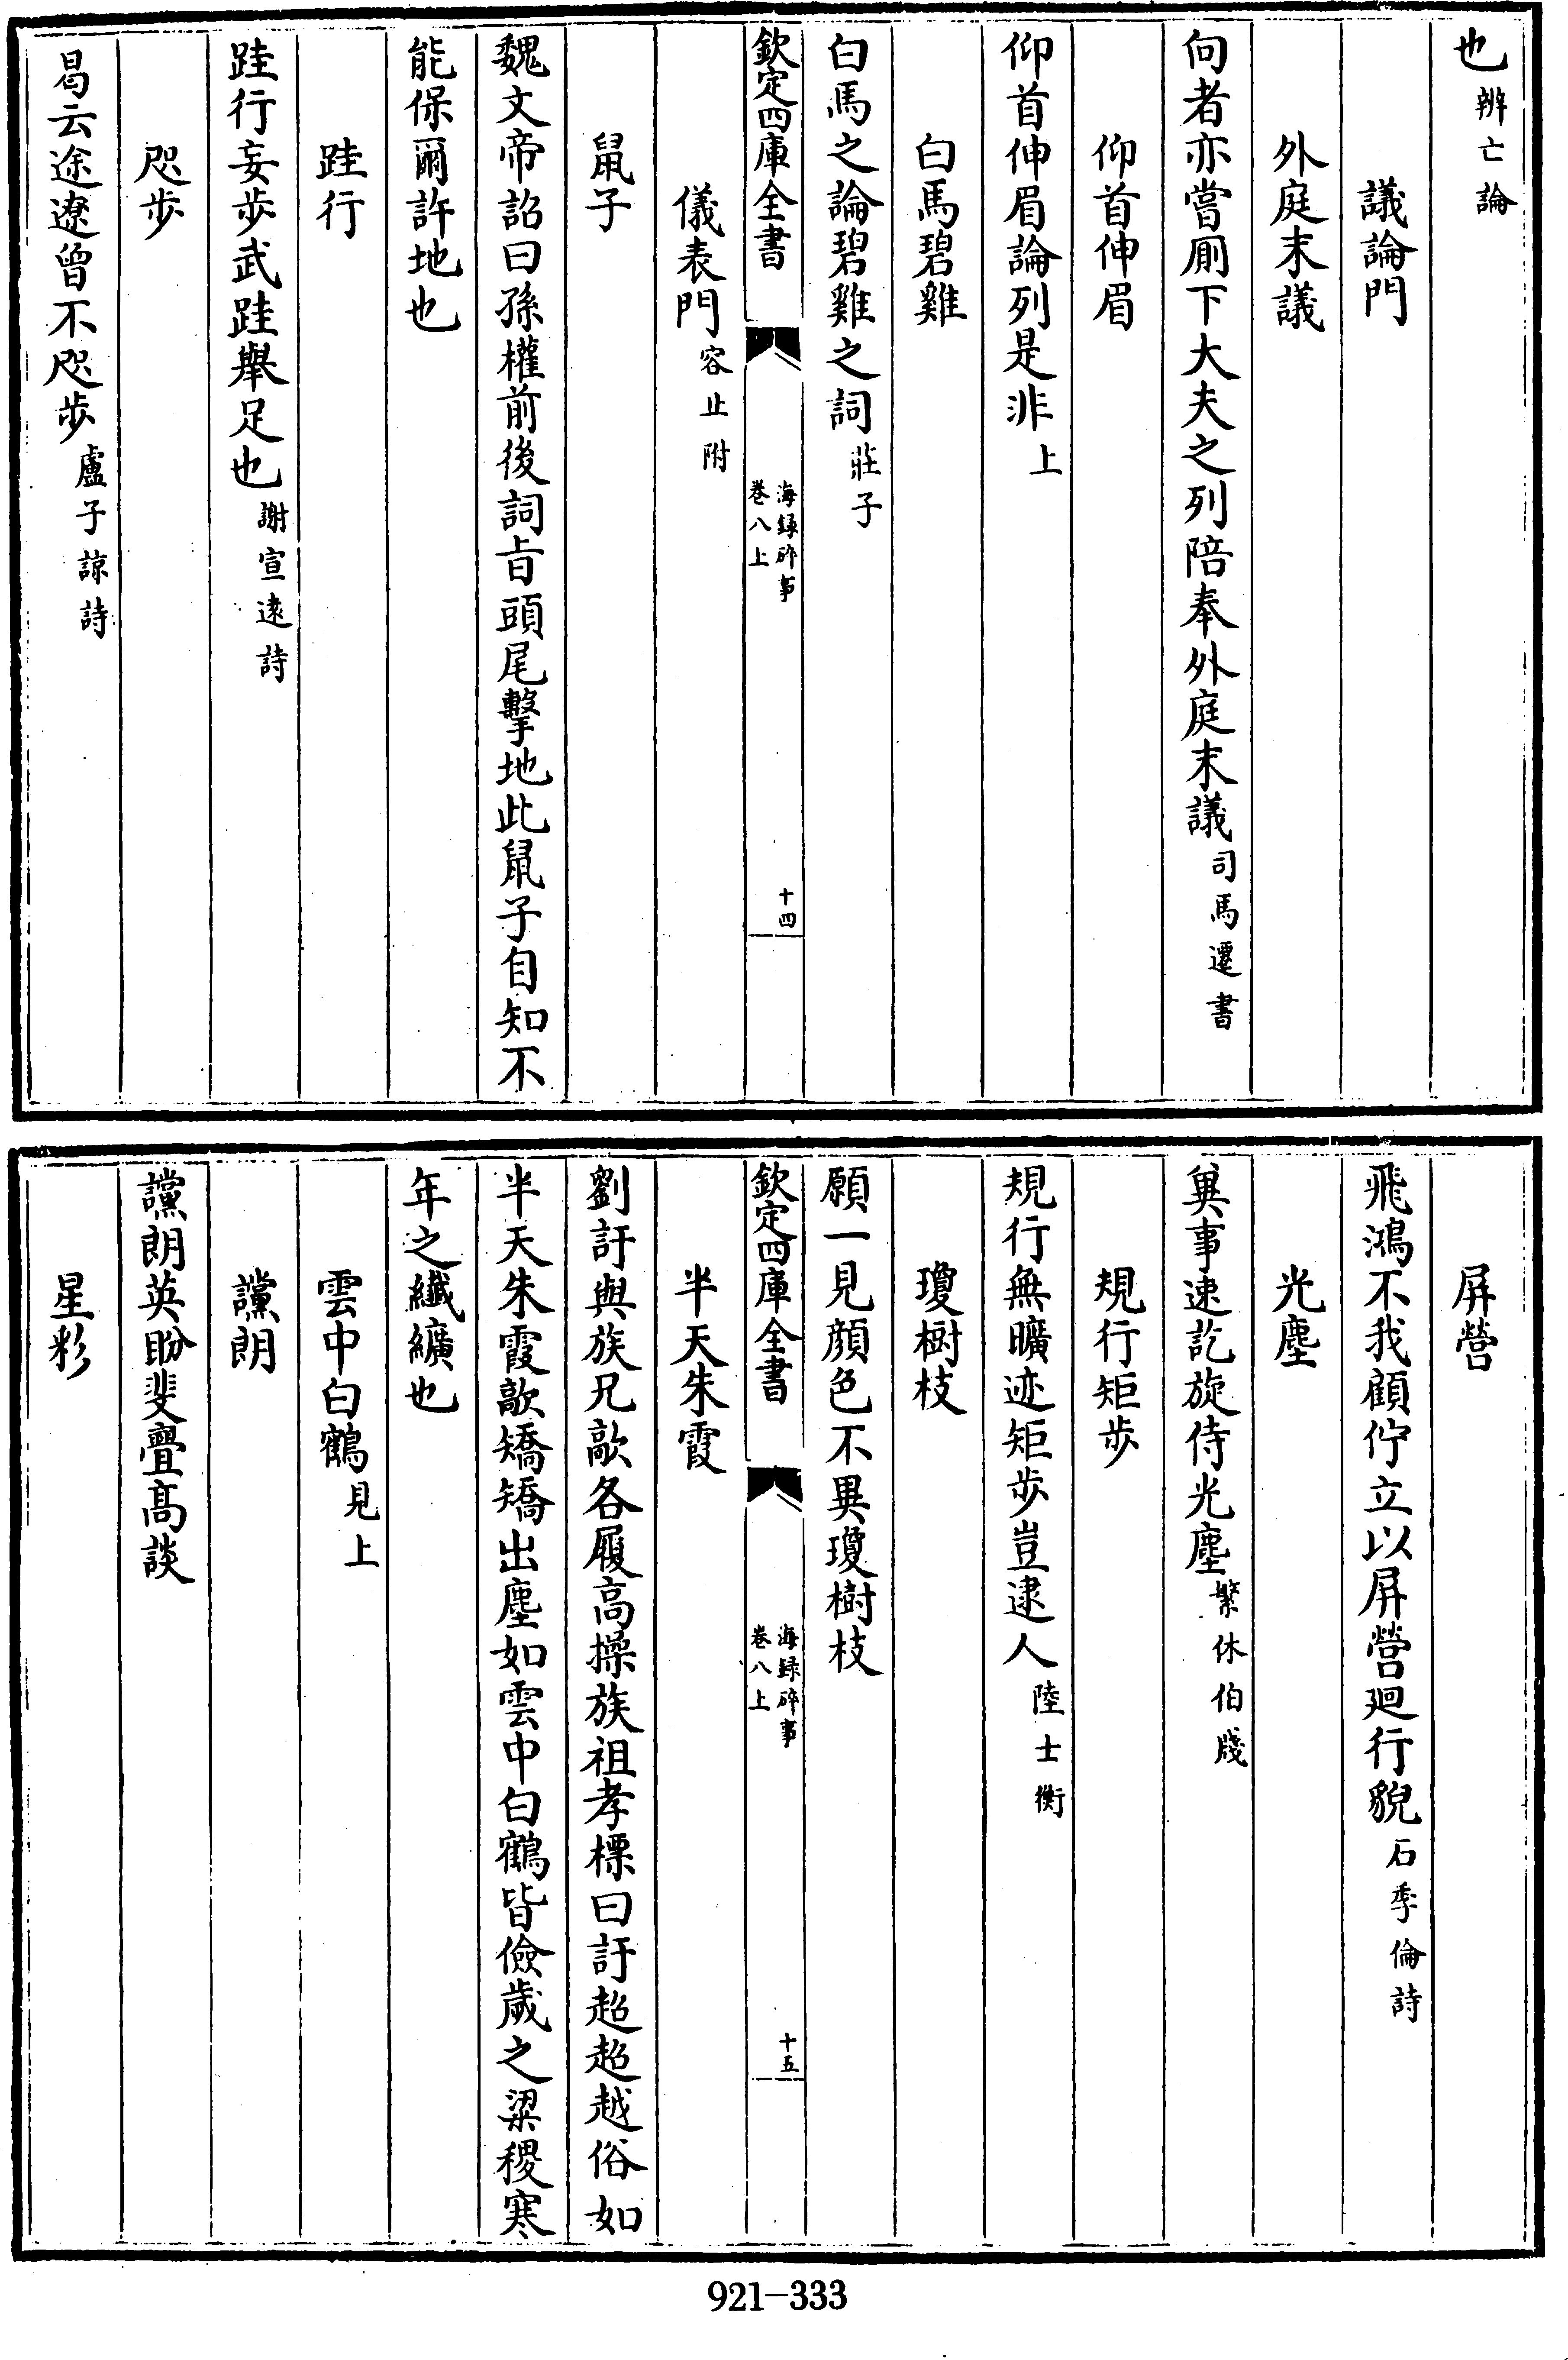 也辨亡論
議論門
外庭末議
向者亦嘗厠下大夫之列陪奉外庭末議司馬遷書
仰首伸眉
仰首伸眉論列是非上
白馬碧雞
白馬之論碧雞之詞莊子
欽定四庫全書
海録碎事
卷八上
十四
儀表門容止附
鼠子
魏文帝詔曰孫權前後詞㫖頭尾擊地此鼠子自知不
能保爾許地也
跬行
跬行妄歩武跬舉足也謝宣逺詩
咫歩
曷云途遼曾不咫歩盧子諒詩
屏營
飛鴻不我顧佇立以屏營廻行貌石季倫詩
光塵
兾事速訖旋侍光塵繁休伯牋
規行矩歩
規行無曠迹矩歩豈逮人陸士衡
瓊樹枝
願一見顔色不異瓊樹枝
欽定四庫全書
海録碎事
卷八上
十五
半天朱霞
劉訏與族兄歊各履高操族祖孝標曰訏超超越俗如
半天朱霞歊矯矯出塵如雲中白鶴皆儉歲之粱稷寒
年之纎纊也
雲中白鶴見上
讜朗
讜朗英盼斐亹髙談
星彩
921-333